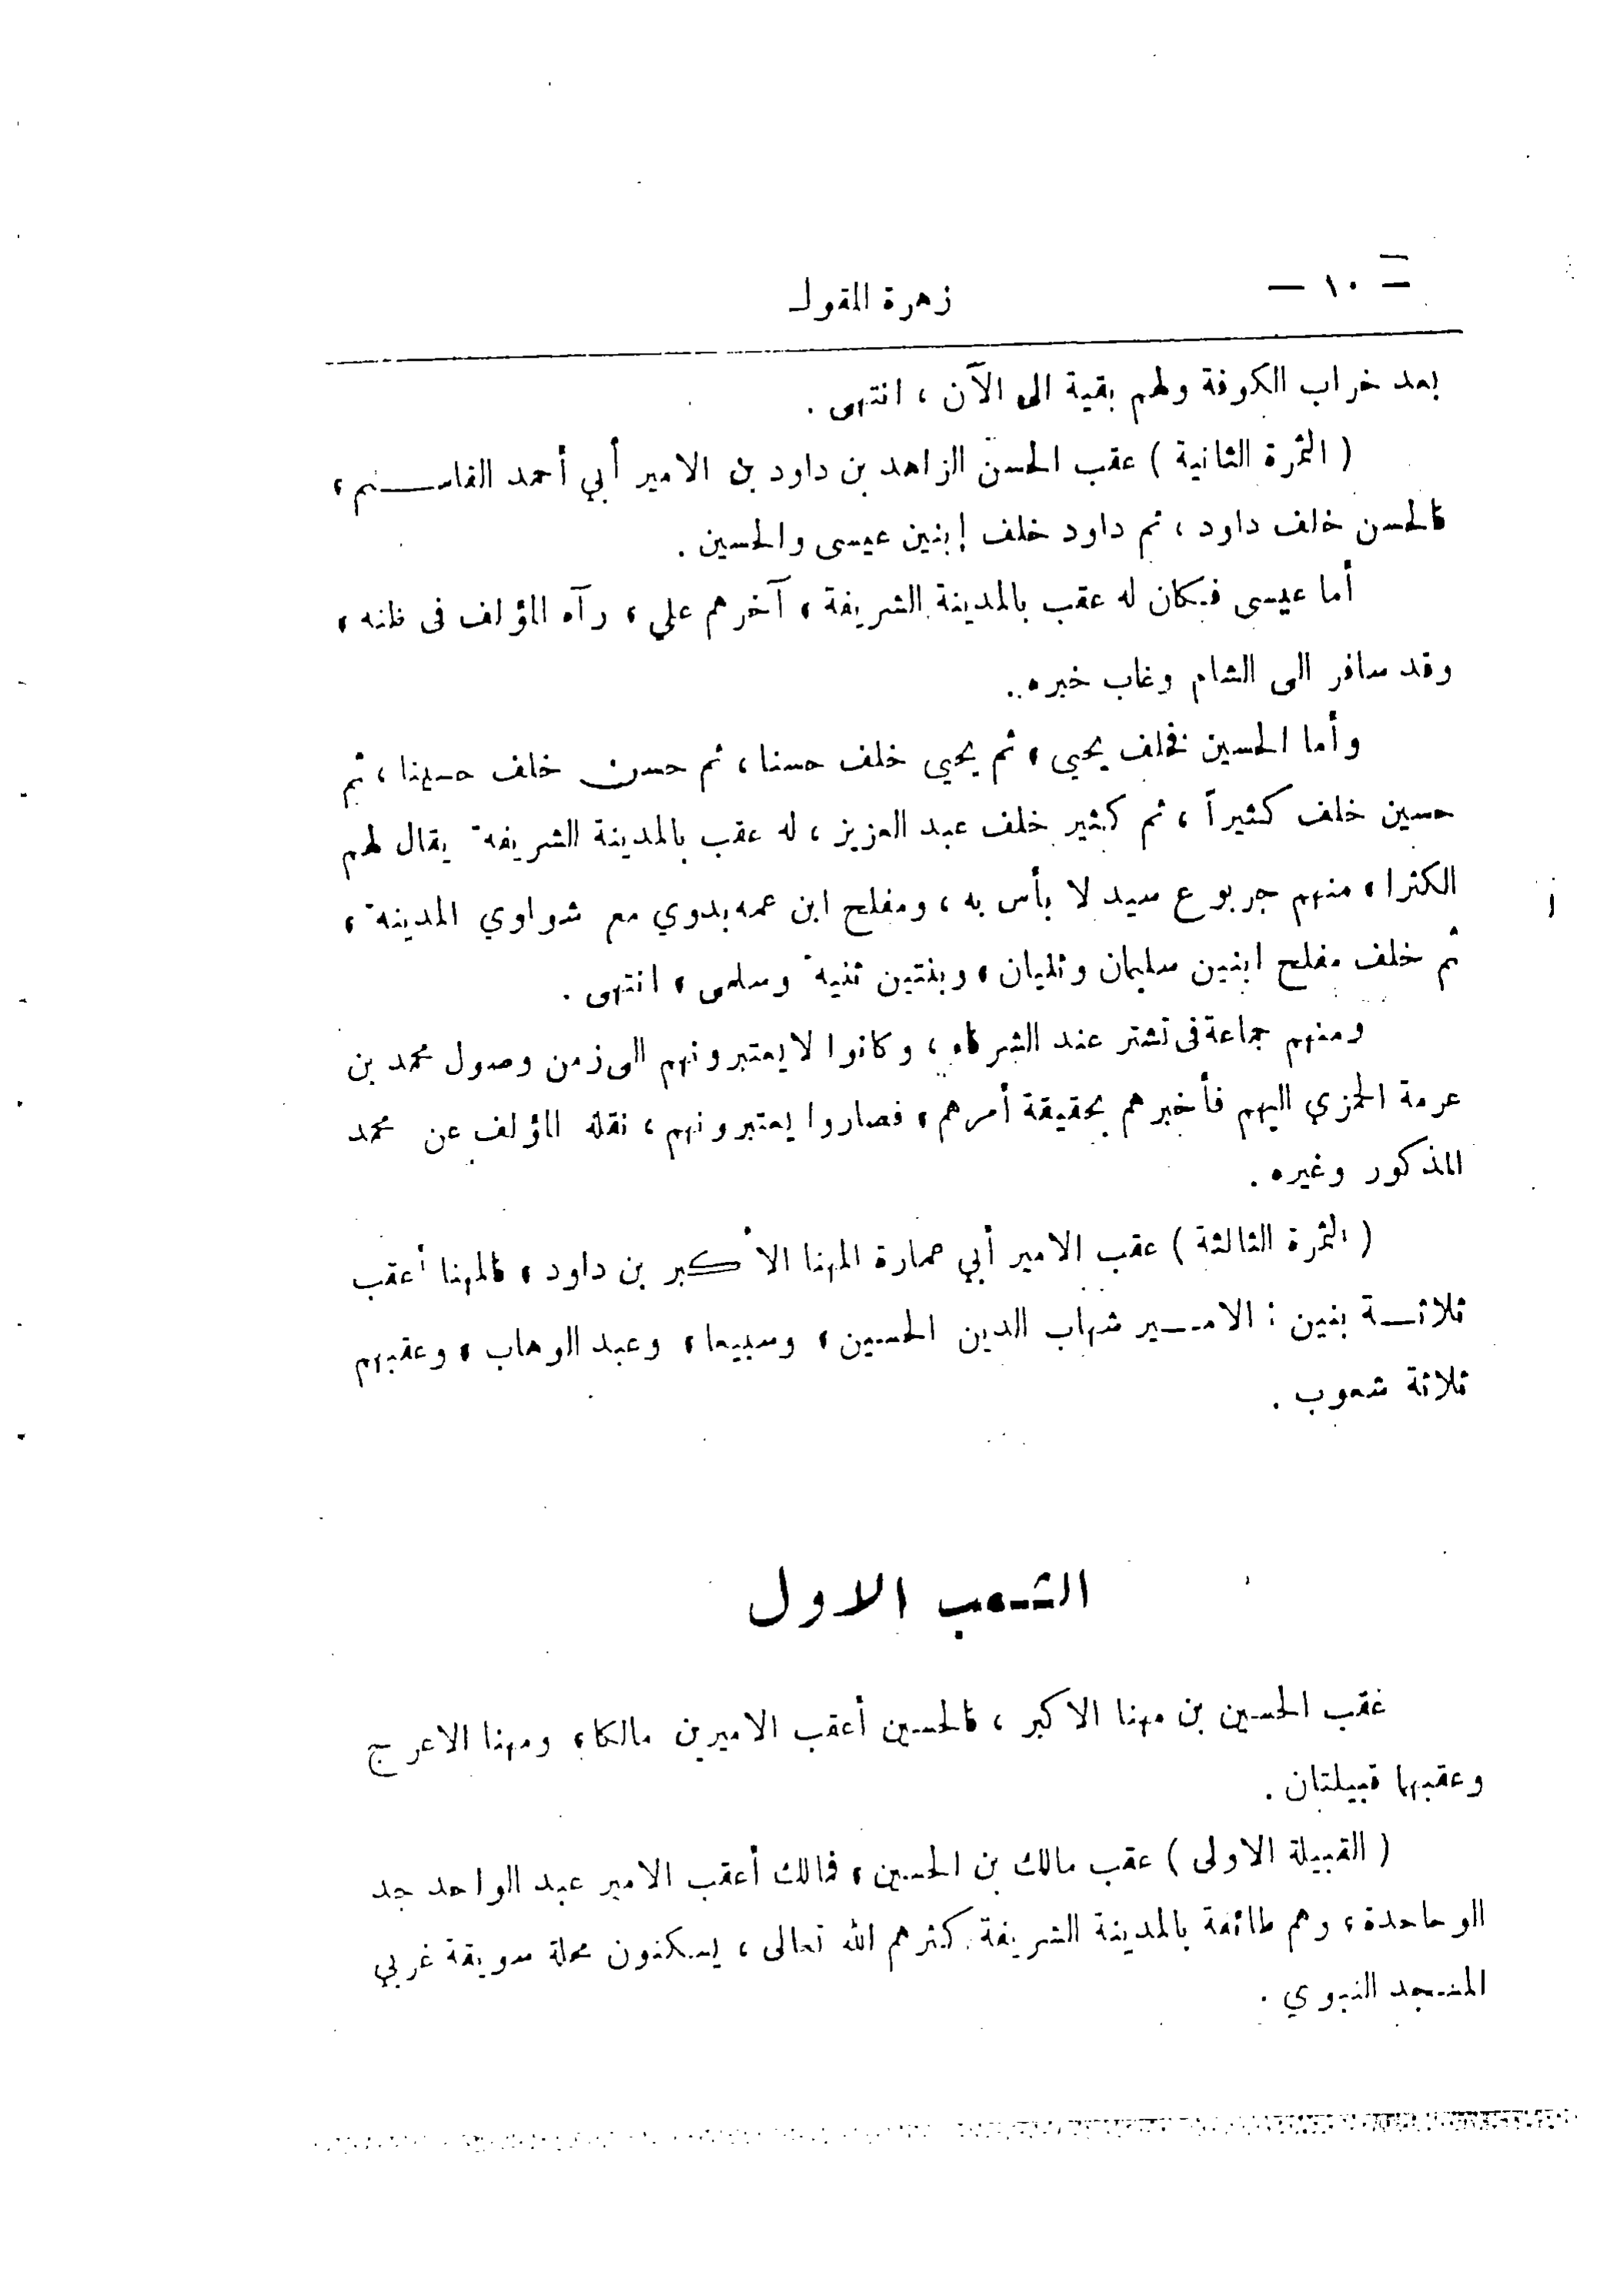 — ١٠ —
زهرة المقول
بعد خراب الكوفة ولهم بقية الى الآن ، انتهى .
( الثمرة الثانية ) عقب الحسن الزاهد بن داود بن الامير أبي أحمد القاسـم ،
فالحسن خلف داود ، ثم داود خلف إبنين عيسى والحسين .
أما عيسى فكان له عقب بالمدينة الشريفة ، آخرهم علي ، رآه المؤلف فى ظنه ،
وقد سافر الى الشام وغاب خبره .
وأما الحسين فخلف يحيى ، ثم يحيى خلف حسنا ، ثم حسن خلف حسينا ، ثم
حسين خلف كثيراً ، ثم كثير خلف عبد العزيز ، له عقب بالمدينة الشريفة يقال لهم
الكثرا ، منهم جربوع سيد لا بأس به ، ومفلح ابن عمه بدوي مع شواوي المدينة ،
ثم خلف مفلح ابنين سليمان وثليان ، وبنتين ثنية وسلمى ، انتهى .
ومنهم جماعة فى تشتر عند الشرفاء ، وكانوا لا يعتبرونهم الى زمن وصول محمد بن
عرمة الحمزي اليهم فأخبرهم بحقيقة أمرهم ، فصاروا يعتبرونهم ، نقله المؤلف عن محمد
المذكور وغيره .
( الثمرة الثالثة ) عقب الامير أبي عمارة المهنا الأكبر بن داود ، فالمهنا أعقب
ثلاثـة بنين : الامـير شهاب الدين الحسين ، وسبيعا ، وعبد الوهاب ، وعقبهم
ثلاثة شعوب .
الشعب الاول
عقب الحسين بن مهنا الاكبر ، فالحسين أعقب الاميرين مالكا ، ومهنا الاعرج
وعقبهما قبيلتان .
( القبيلة الاولى ) عقب مالك بن الحسين ، فمالك أعقب الامير عبد الواحد جد
الوحاحدة ، وهم طائفة بالمدينة الشريفة كثرهم الله تعالى ، يسكنون محلة سويقة غربي
المسجد النبوي .